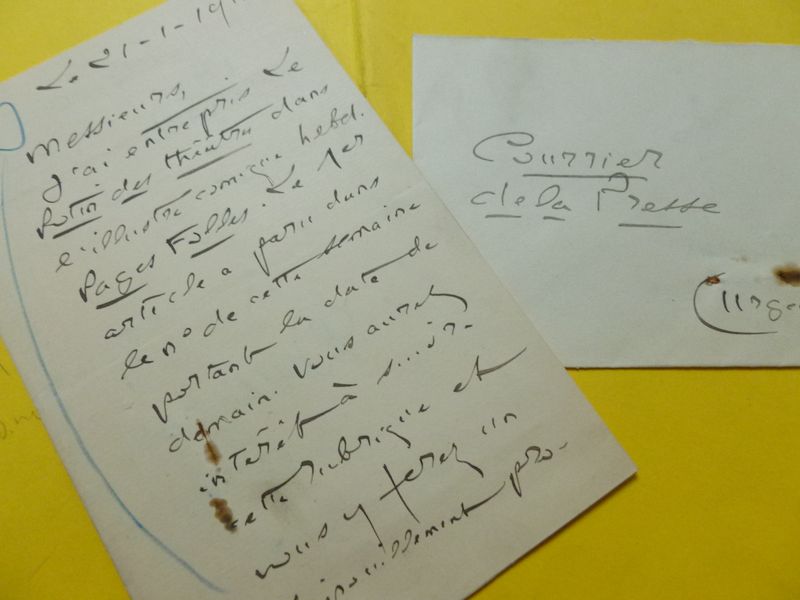 Le 21-1-19
Messieurs,
J'ai entrepris le
Potin des théâtres dans
l'illustré comique hebd.
Pages Folles. Le 1er
article a paru dans
le no de cette semaine
portant la date de
demain. Vous aurez
intérêt à suivre
cette rubrique et
vous y ferez un
dépouillement pro-
Courrier
de la Presse
(Urge